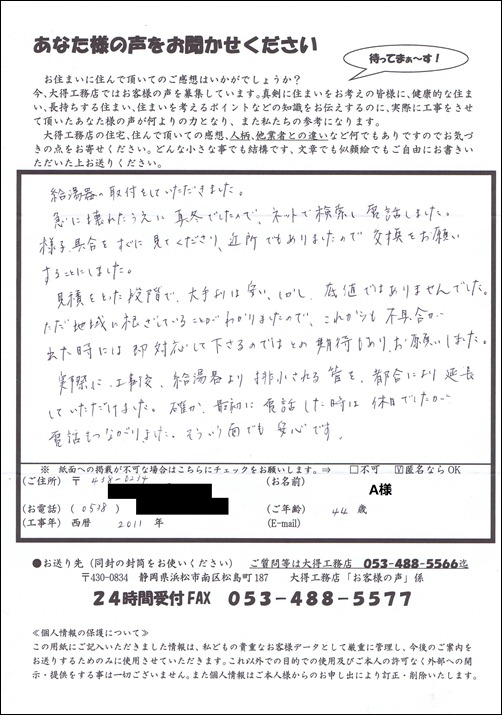 あなた様の声をお聞かせください
待ってまぁ～す！
お住まいに住んで頂いてのご感想はいかがでしょうか？
今、大得工務店ではお客様の声を募集しています。真剣に住まいをお考えの皆様に、健康的な住ま
い、長持ちする住まい、住まいを考えるポイントなどの知識をお伝えするのに、実際に工事をさせ
て頂いたあなた様の声が何よりの力となり、また私たちの参考になります。
大得工務店の住宅、住んで頂いての感想、人柄、他業者との違いなど何でもありですのでお気づ
きの点をお寄せください。どんな小さな事でも結構です、文章でも似顔絵でもご自由にお書きい
ただいた上お送りください。
給湯器の取付をしていただきました。
急に壊れたうえに真冬でしたので、ネットで検索し電話しました。
様子、具合をすぐに見てくださり、近所でもありましたので交換をお願い
することにしました。
見積をとった段階で、大手よりは安い、しかし、底値ではありませんでした。
ただ地域に根ざしていることがわかりましたので、これからも不具合が
出た時には即対応して下さるのではとの期待もあり、お願いしました。
実際に、工事後、給湯器より排水される管を、都合により延長
していただけました。確か、最初に電話した時は休日でしたが
電話もつながりました。そういう面でも安心です。
※ 紙面への掲載が不可な場合はこちらにチェックをお願いします。⇒ □不可 ☑匿名ならOK
(ご住所) 〒 438-0234 (お名前) A様
(お電話) (0538) (ご年齢) 44 歳
(工事年) 西暦 2011 年 (E-mail)
●お送り先（同封の封筒をお使いください） ご質問等は大得工務店 053-488-5566迄
〒430-0834 静岡県浜松市南区松島町187 大得工務店「お客様の声」係
24時間受付FAX 053-488-5577
≪個人情報の保護について≫
この用紙にご記入いただきました情報は、私どもの貴重なお客様データとして厳重に管理し、今後のご案内を
お送りするためのみに使用させていただきます。これ以外での目的での使用及びご本人の許可なく外部への開
示・提供をする事は一切ございません。また個人情報はご本人様からのお申し出により訂正・削除いたします。